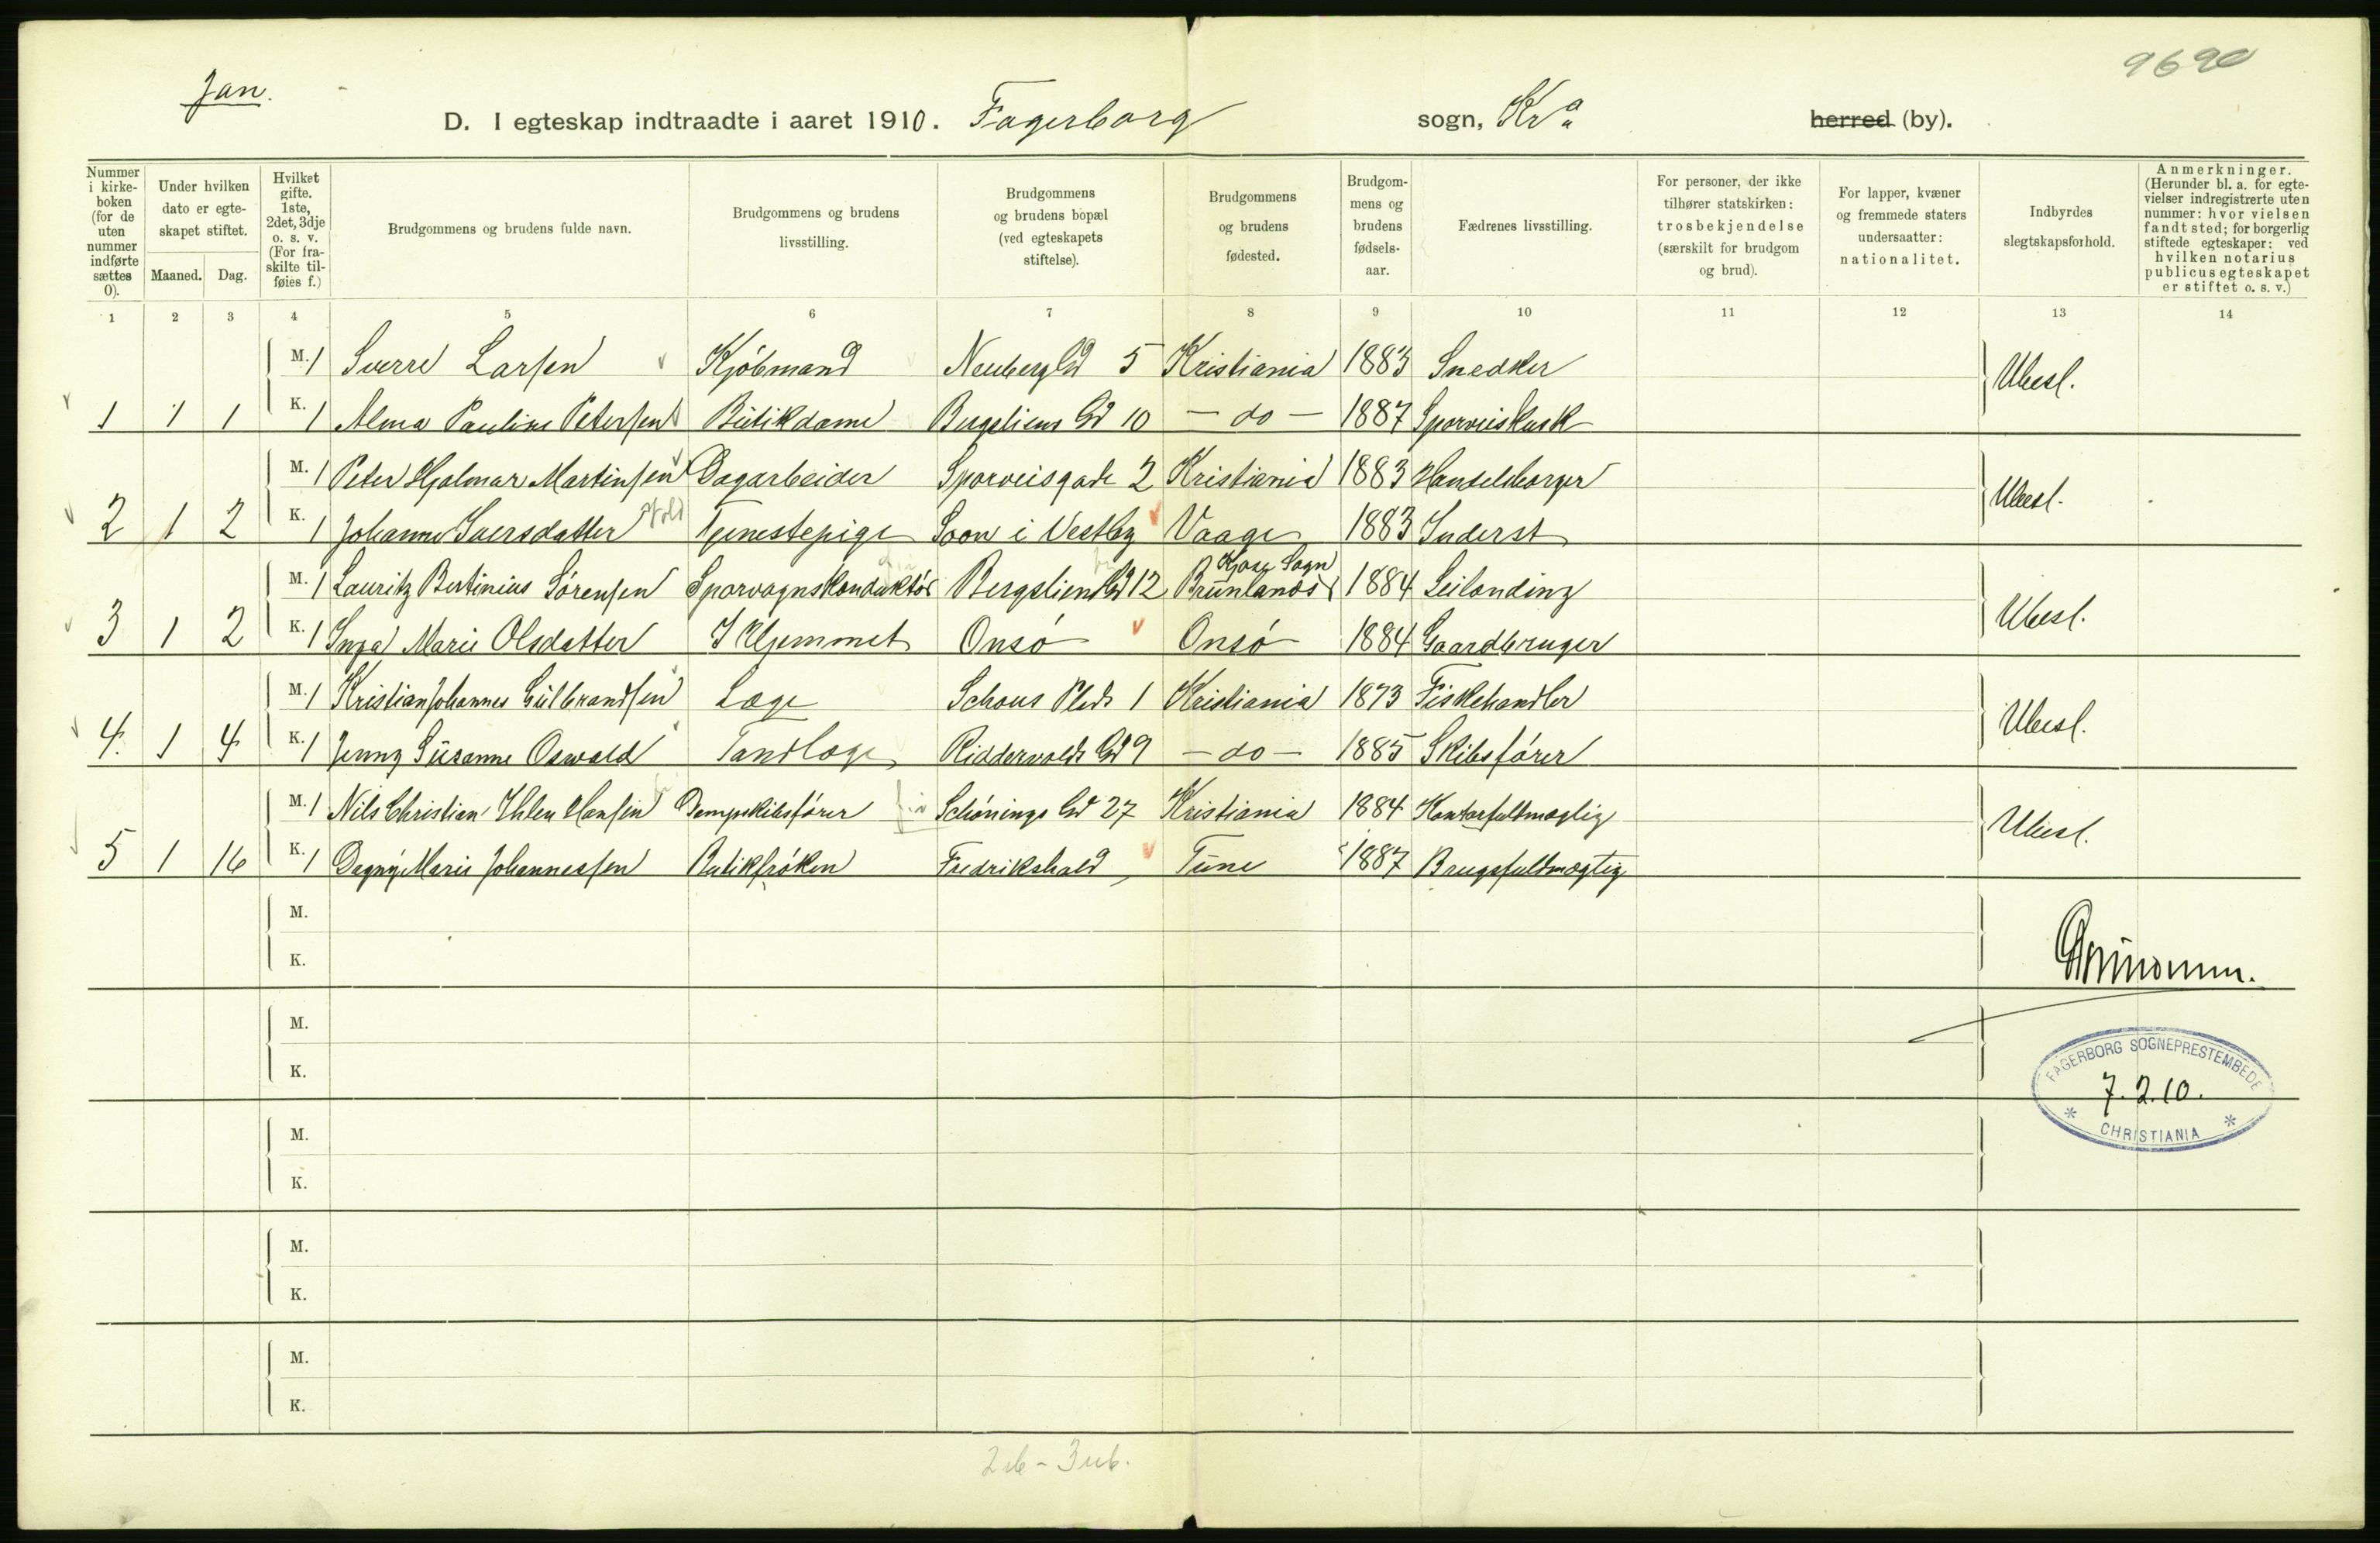 Jan.
9690
D. I egteskap indtraadte i aaret 1910. Fagerborg sogn, Kra herred (by).
Nummer i kirkeboken (for de uten nummer indførte sættes 0).
Under hvilken dato er egteskapet stiftet.
Maaned. Dag.
Hvilket gifte. 1ste, 2det, 3dje o. s. v. (For fraskilte tilføies f.)
Brudgommens og brudens fulde navn.
Brudgommens og brudens livsstilling.
Brudgommens og brudens bopæl (ved egteskapets stiftelse).
Brudgommens og brudens fødested.
Brudgommens og brudens fødselsaar.
Fædrenes livsstilling.
For personer, der ikke tilhører statskirken: trosbekjendelse (særskilt for brudgom og brud).
For lapper, kvæner og fremmede staters undersaatter: nationalitet.
Indbyrdes slegtskapsforhold.
Anmerkninger. (Herunder bl. a. for egtevielser indregistrerte uten nummer: hvor vielsen fandt sted; for borgerlig stiftede egteskaper: ved hvilken notarius publicus egteskapet er stiftet o. s. v.)
1 2 3 4 5 6 7 8 9 10 11 12 13 14
M. 1 Sverre Larsen Kjøbmand Neuberg Gd 5 Kristiania 1883 Snedker Ubesl.
1 1 1 K. 1 Alma Pauline Petersen Butikdame Bugeliens Gd 10 — do — 1887 Sporveiskusk
M. 1 Peter Hjalmar Martinsen Dagarbeider Sporveisgade 2 Kristiania 1883 Handelsborger Ubesl.
2 1 2 K. 1 Johanne Iversdatter Tjenestepige Soon i Vestby Vaage 1883 Inderst
Kjose Sogn
M. 1 Lauritz Bertinius Sørensen Sporvognskonduktør Bergslien Gd 12 Brunlands 1884 Leilænding Ubesl.
3 1 2 K. 1 Inga Marie Olsdatter I Hjemmet Onsø Onsø 1884 Gaardbruger
M. 1 Kristian Johannes Gulbrandsen Læge Schous Plads 1 Kristiania 1873 Fiskehandler Ubesl.
4. 1 4 K. 1 Jenny Susanne Oswald Tandlæge Riddervolds Gd 9 — do — 1885 Skibsfører
M. 1 Nils Christian Ihlen Hansen Dampskibsfører Schønings Gd 27 Kristiania 1884 Kontorfuldmægtig Ubesl.
5 1 16 K. 1 Dagny Marie Johannessen Butikfrøken Fredrikshald Tune 1887 Brugsfuldmægtig
M.
K.
M.
K.
FAGERBORG SOGNEPRESTEMBEDE
7.2.10.
* CHRISTIANIA *
M.
K.
M.
K.
M.
K.
2 ib - 3 ub.